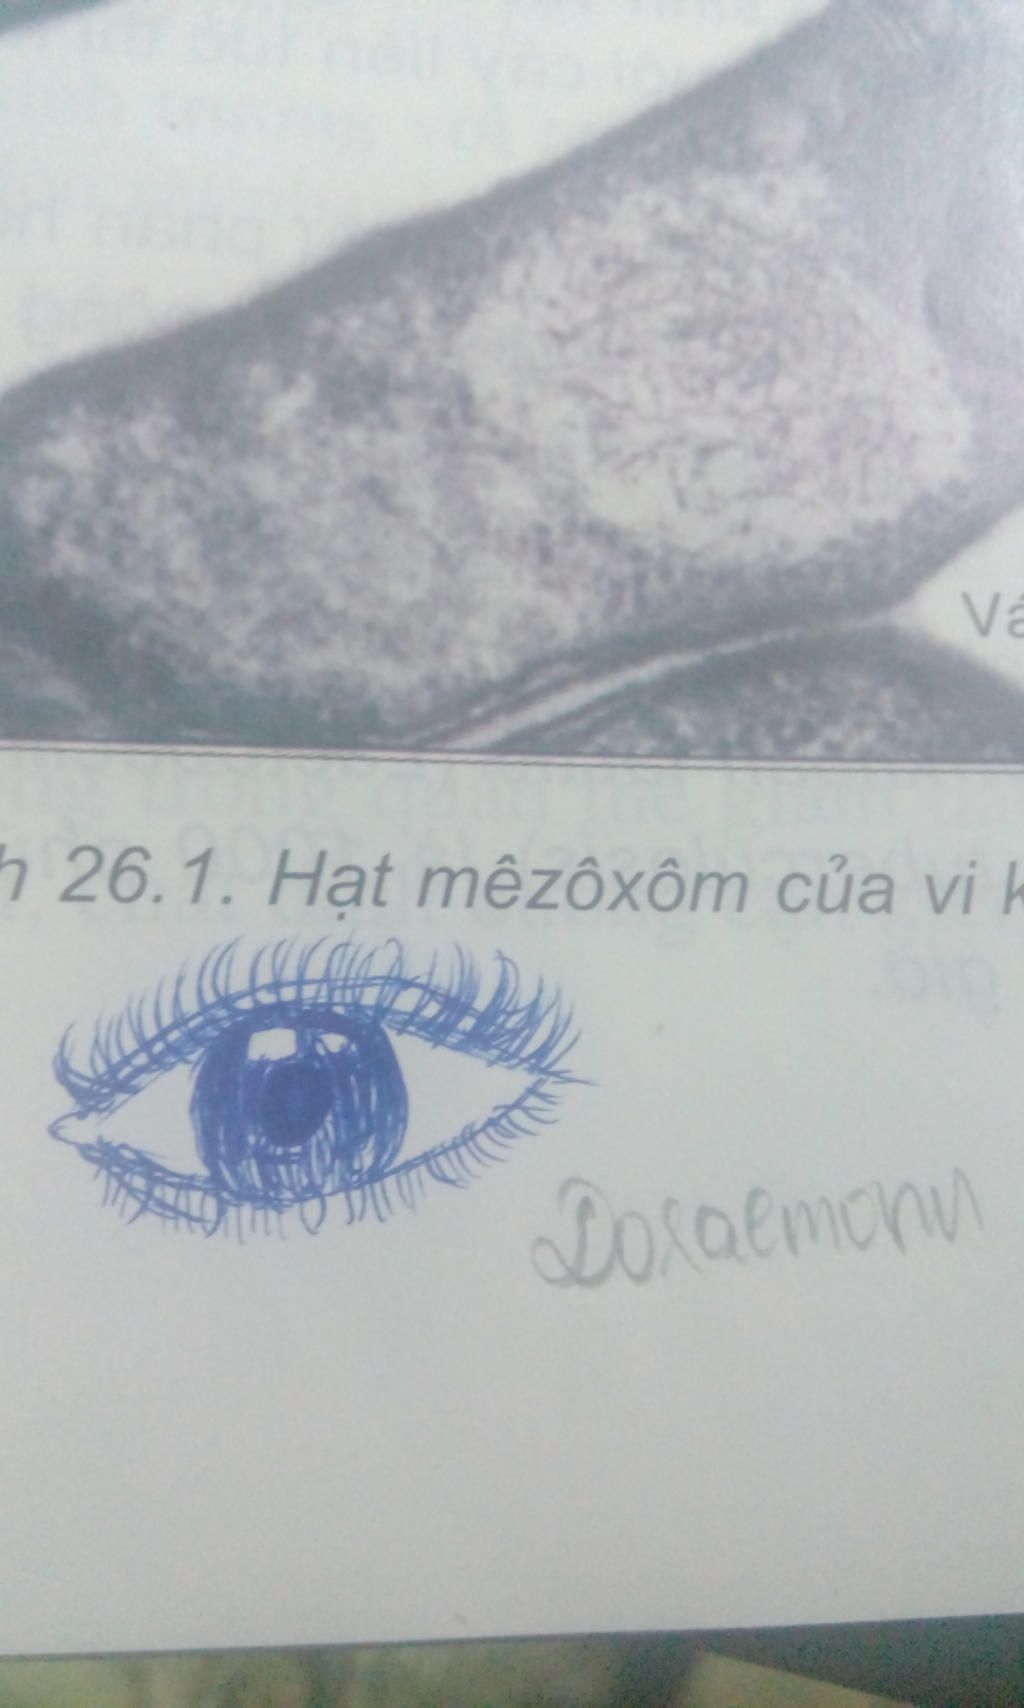 Vá
h 26.1. Hạt mêzôxôm của vi k
Doraemonu